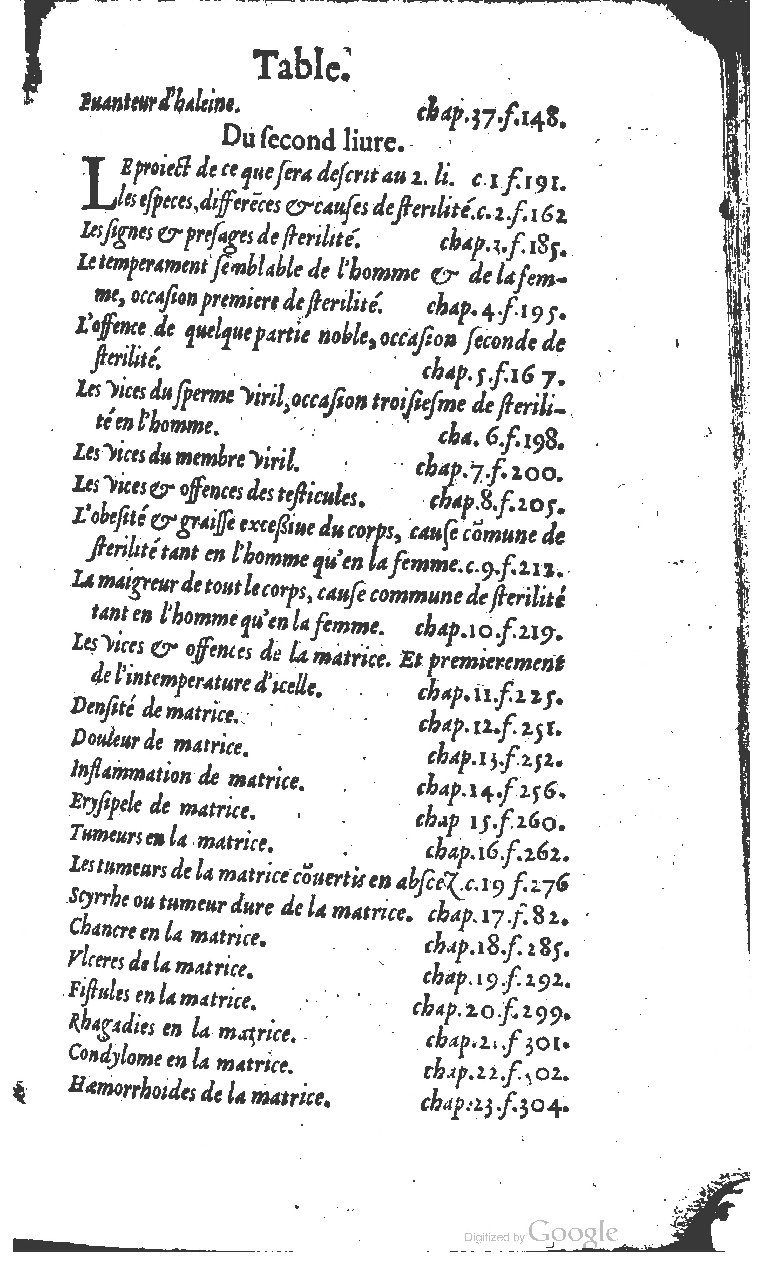 Table.
Puanteur d'haleine. chap.37.f.148.
Du ſecond liure.
LE proiect de ce que ſera deſcrit au 2. li. c.1 f.191.
les eſpeces, differēces & cauſes de ſterilité.c.2.f.162
Les ſignes & preſages de ſterilité. chap.3.f.185.
Le temperament ſemblable de l'homme & de la fem-
me, occaſion premiere de ſterilité. chap.4.f.195.
L'offence de quelque partie noble, occaſion ſeconde de
ſterilité. chap.5.f.167.
Les vices du ſperme viril, occaſion troiſieſme de ſterili-
té en l'homme. cha. 6.f.198.
Les vices du membre viril. chap.7.f.200.
Les vices & offences des teſticules. chap.8.f.205.
L'obeſité & graiſſe exceßiue du corps, cauſe cōmune de
ſterilité tant en l'homme qu'en la femme.c.9.f.212.
La maigreur de tout le corps, cauſe commune de ſterilité
tant en l'homme qu'en la femme. chap.10.f.219.
Les vices & offences de la matrice. Et premierement
de l'intemperature d'icelle. chap.11.f.225.
Denſité de matrice. chap.12.f.251.
Douleur de matrice. chap.13.f.252.
Inflammation de matrice. chap.14.f 256.
Eryſipele de matrice. chap 15.f.260.
Tumeurs en la matrice. chap.16.f.262.
Les tumeurs de la matrice cōuertis en abſcez.c.19 f.276
Scyrrhe ou tumeur dure de la matrice. chap.17.f.82.
Chancre en la matrice. chap.18.f.285.
Vlceres de la matrice. chap.19.f.292.
Fiſtules en la matrice. chap.20.f.299.
Rhagadies en la matrice. chap.21.f 301.
Condylome en la matrice. chap.22.f.302.
Hæmorrhoides de la matrice. chap.23.f.304.
Digitized by Google